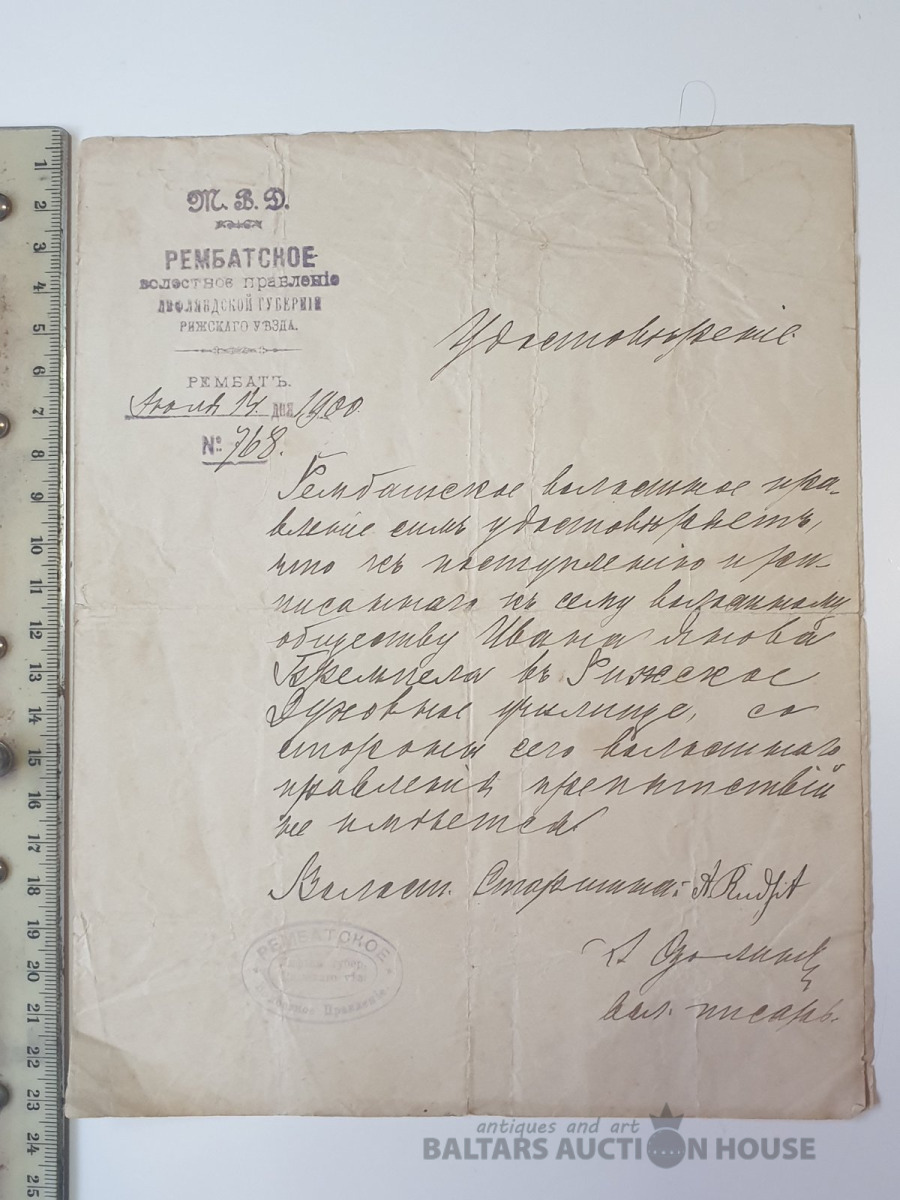 М. В. Д.
РЕМБАТСКОЕ
волостное правленіе
ЛИФЛЯНДСКОЙ ГУБЕРНІИ
РИЖСКАГО УѢЗДА.
РЕМБАТЪ.
14 дня 1900
№ 768.
Удостовѣреніе.
Рембатское волостное пра-
вленіе симъ удостовѣряетъ,
что къ поступленію при-
писаннаго къ сему волостному
обществу Ивана Янова
Кремпела въ Рижское
Духовное училище, со
стороны сего волостнаго
правленія препятствій
не имѣется
Волост. Старшина:
А Озолинъ
вол. писарь.
РЕМБАТСКОЕ
Волостное Правленіе
1
2
3
4
5
6
7
8
9
10
11
12
13
14
15
16
17
18
19
20
21
22
23
24
25
antiques and art
BALTARS AUCTION HOUSE